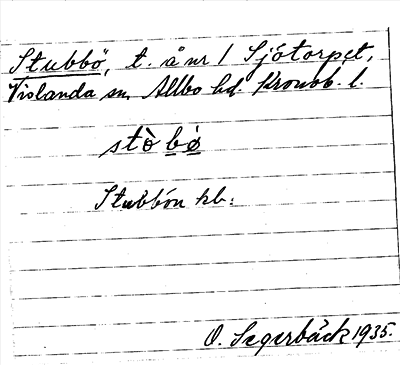 Stubbö, t. å nr 1 Sjötorpet,
Vislanda sn, Allbo hd. Kronob. l.
stò bǿ
Stubbön kb:
O. Segerbäck 1935.